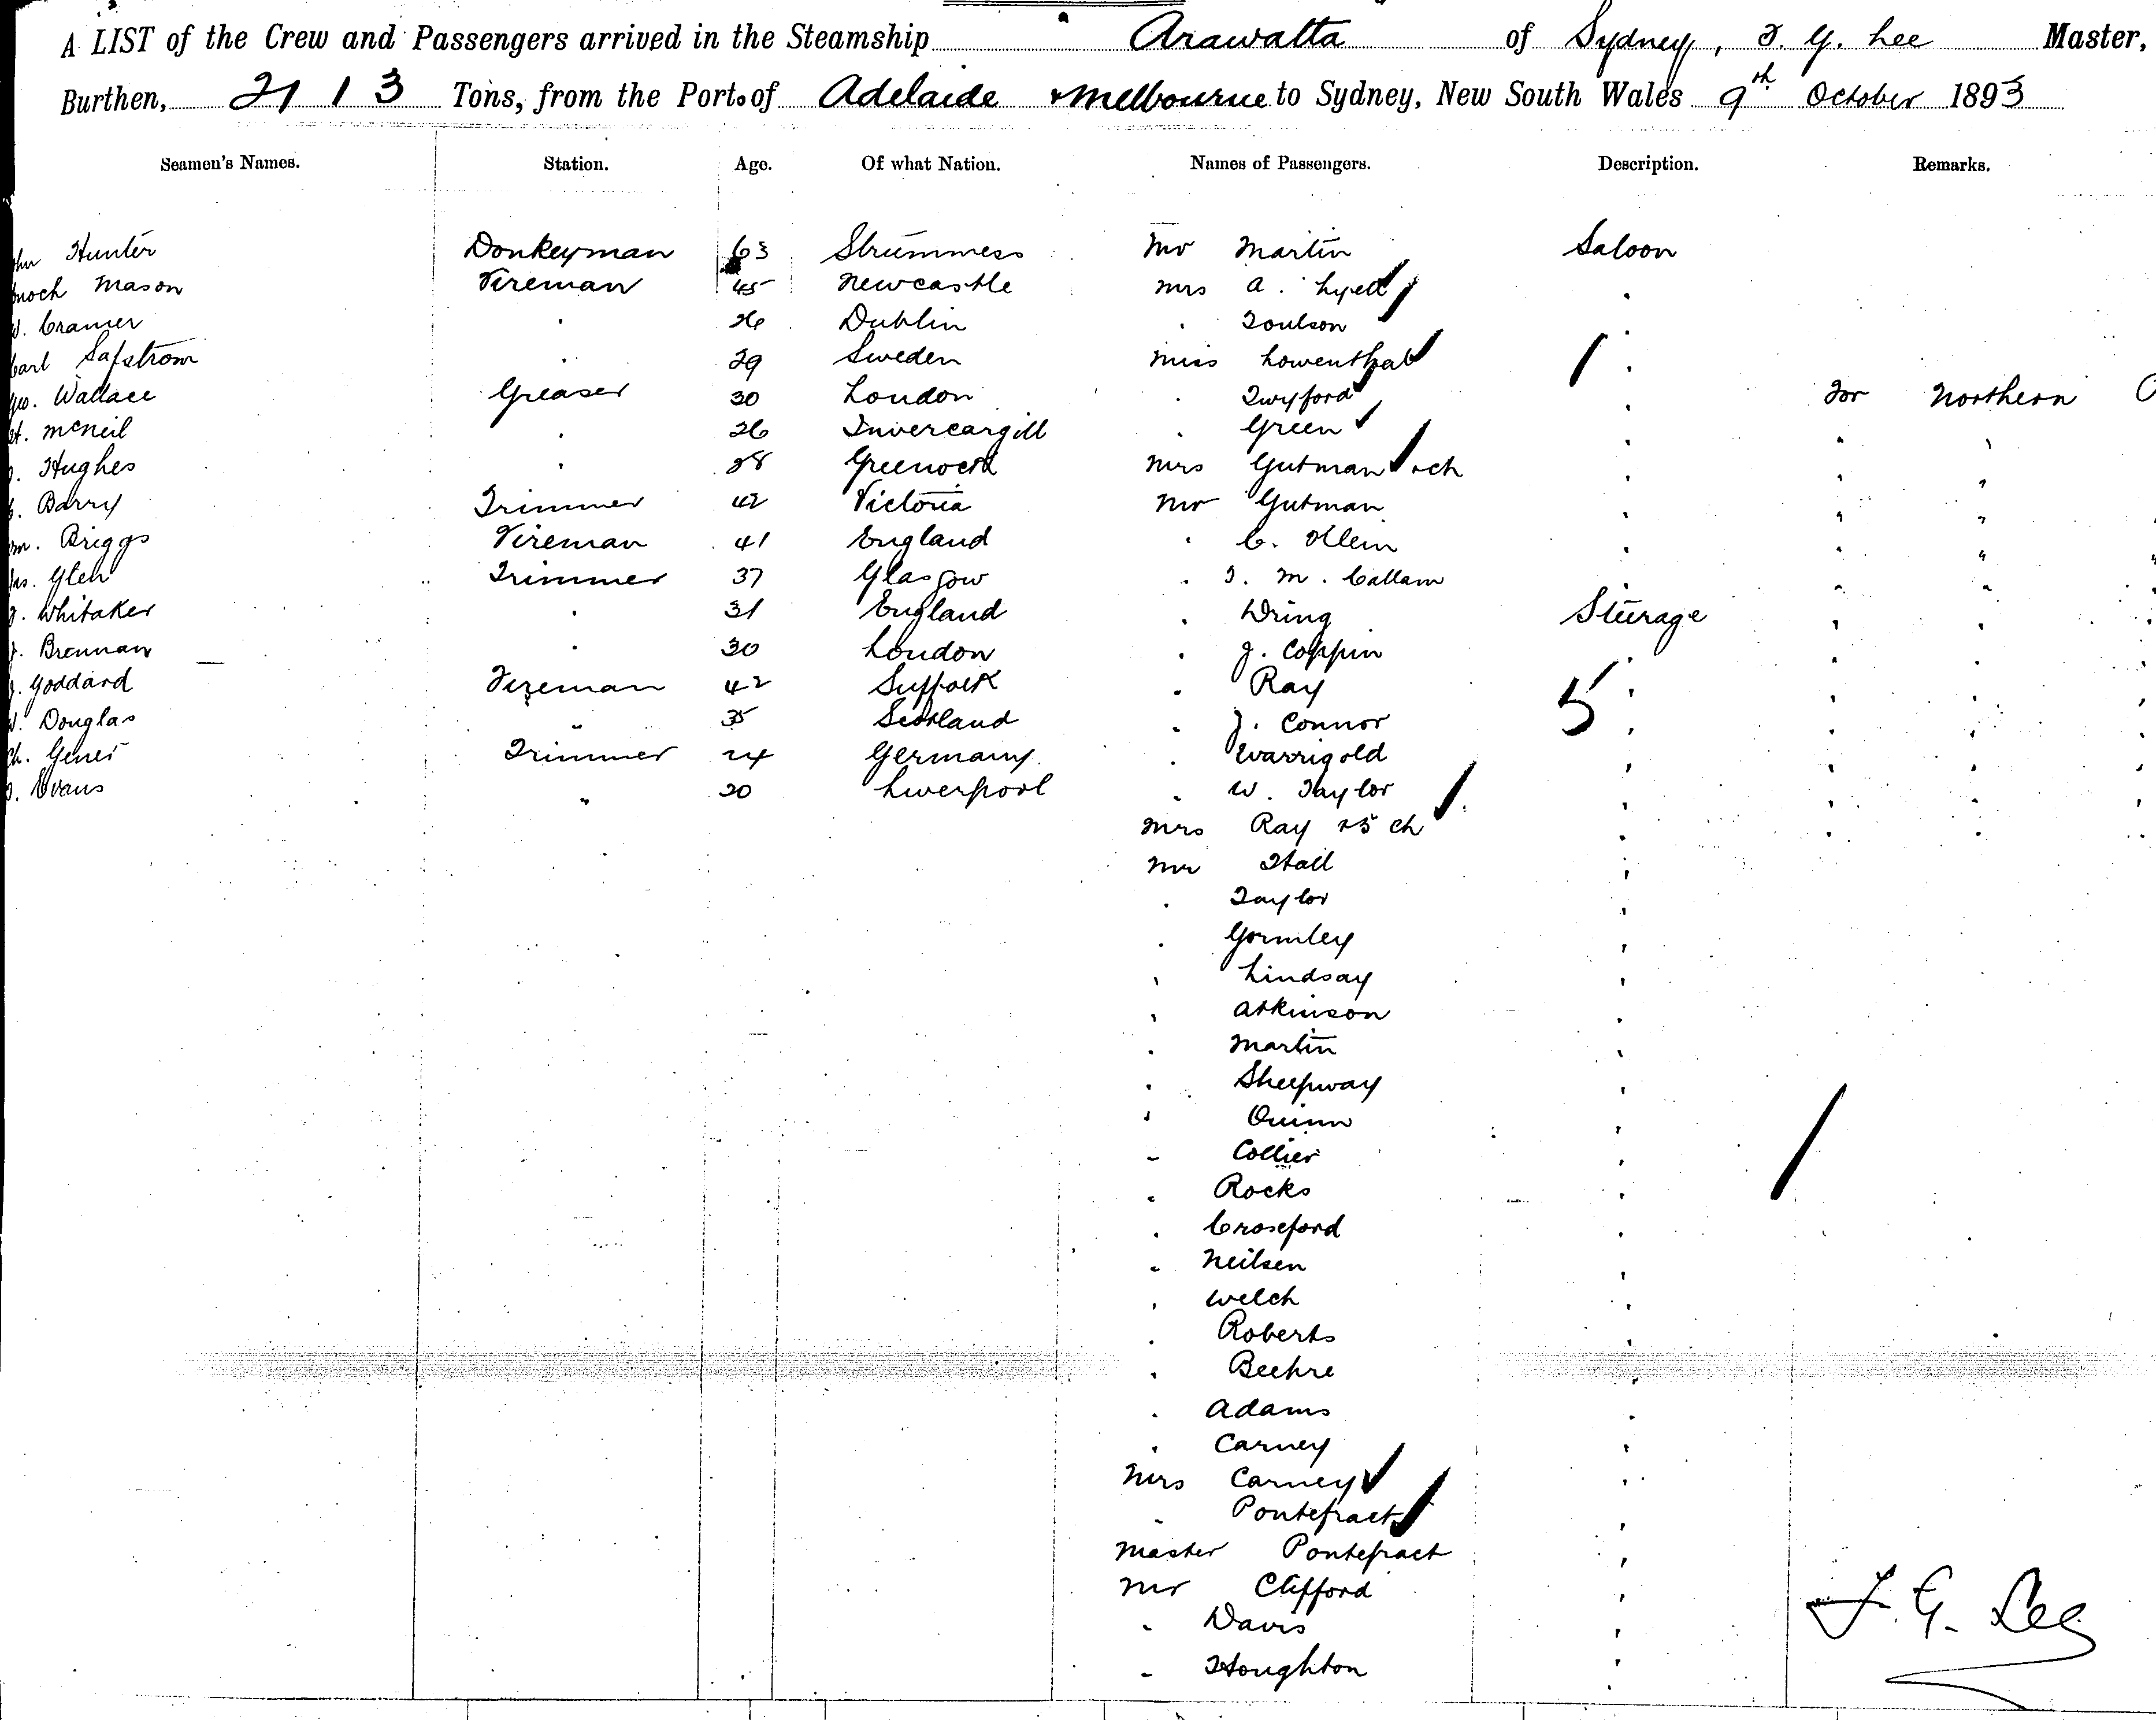 A LIST of the Crew and Passengers arrived in the Steamship Arawatta of Sydney, F. G. Lee Master,
Burthen, 2113 Tons, from the Port of Adelaide + Melbourne to Sydney, New South Wales 9th October 1893
Seamen's Names. Station. Age. Of what Nation. Names of Passengers. Description. Remarks.
hn Hunter Donkeyman 63 Strumness Mr Martin Saloon
noch Mason Fireman 45 Newcastle Mrs A. Lyell "
W. Cramer " 26 Dublin " Foulson "
Carl Safstrom " 29 Sweden Miss Lowenthal "
Geo. Wallace Greaser 30 London " Twyford " For Northern
H. McNeil " 26 Invercargill " Green " " "
Hughes " 28 Greenock Mrs Gutman + ch " " "
Barry Trimmer 42 Victoria Mr Gutman " " "
m. Briggs Fireman 41 England " C. Klein " " "
Jas. Glen Trimmer 37 Glasgow " T. M. Callam " " "
J. Whitaker " 31 England " Dring Steerage " "
J. Brennan " 30 London " J. Coppin " " "
J. Goddard Fireman 42 Suffolk " Ray 5 " " "
W. Douglas " 35 Scotland " J. Connor " " "
Ch. Gener Trimmer 24 Germany " Warrigold " " "
Evans " 20 Liverpool " W. Taylor " " "
Mrs Ray + 5 ch " " "
Mr Hall "
" Taylor "
" Gormley "
" Lindsay "
" Atkinson "
" Martin "
" Sheepway "
" Quinn "
" Collier "
" Rocks "
" Croseford "
" Neilsen "
" Welch "
" Roberts "
" Beehre "
" Adams "
" Carney "
Mrs Carney "
" Pontefract "
Master Pontefract "
Mr Clifford "
" Davis "
" Houghton "
F. G. Lee